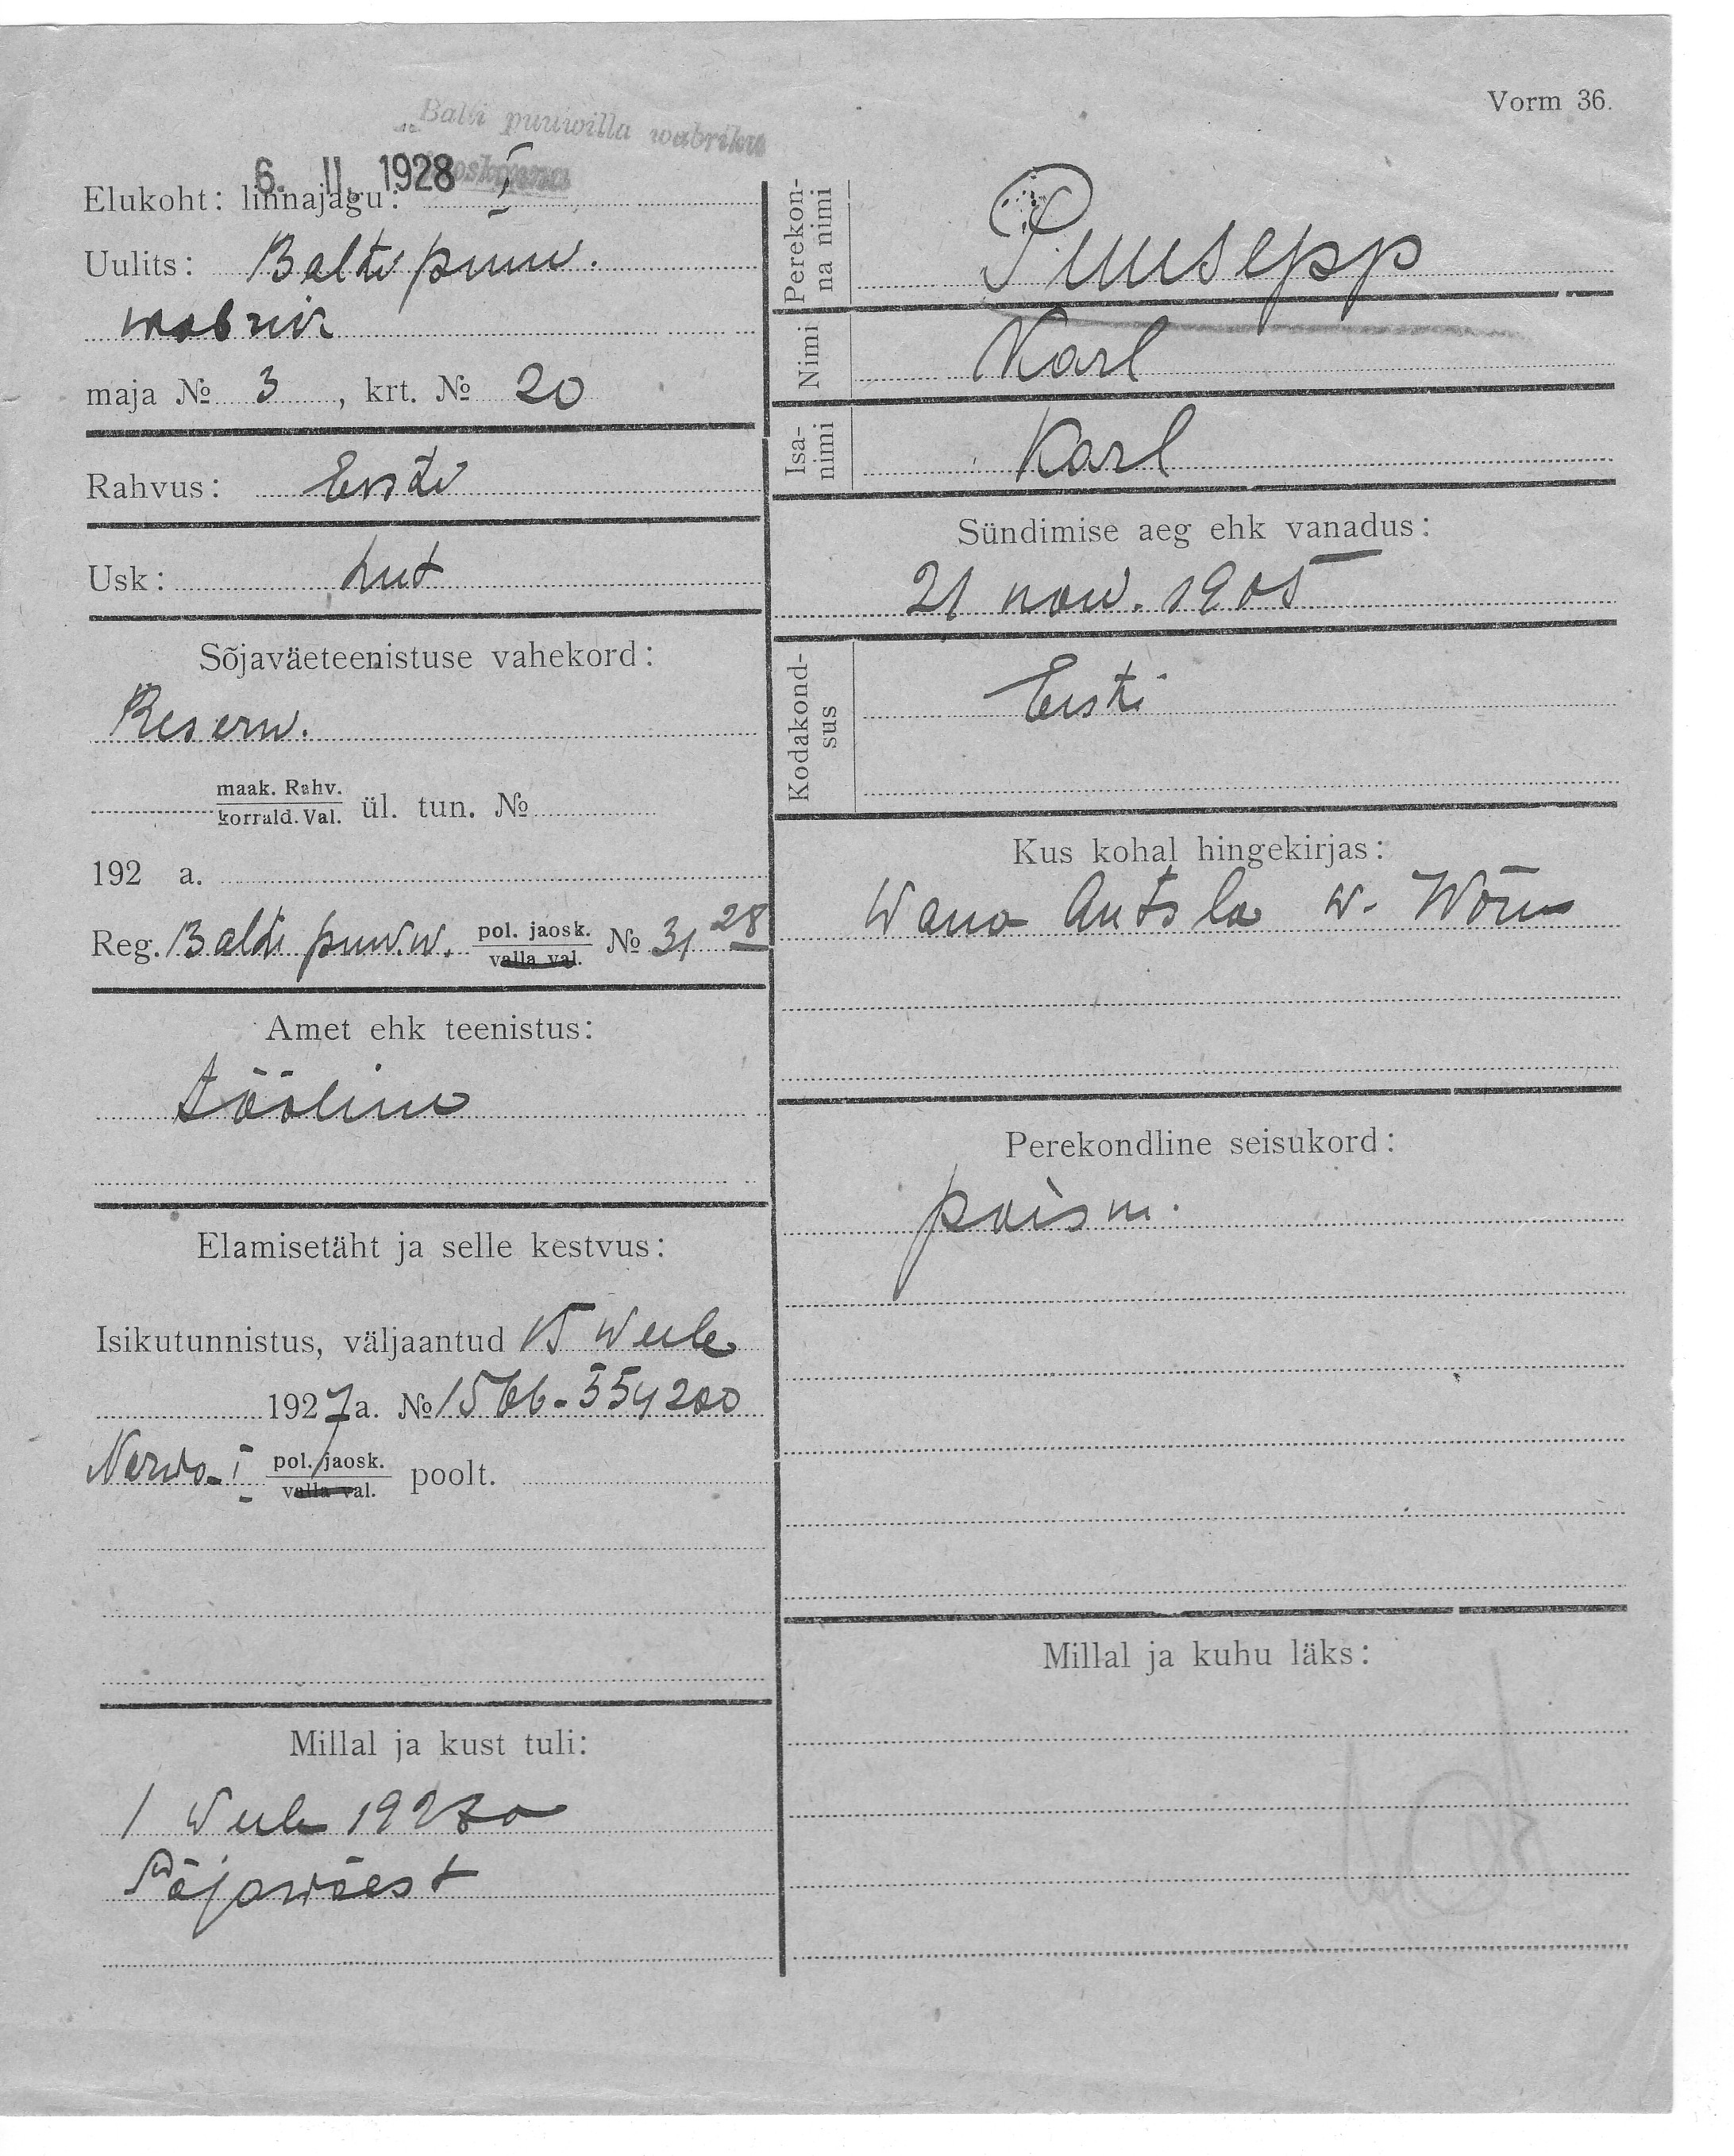 Vorm 36.
Balti puuwilla wabriku
jaoskonna
6. II. 1928
Elukoht: linnajagu: I
Uulits: Balti puuw.
wabrik
maja № 3, krt. № 20
Rahvus: Eesti
Usk: Lut
Sõjaväeteenistuse vahekord:
Reserw.
maak. Rahv.
korrald. Val. ül. tun. №
192 a.
Reg. Balti puuw.w. pol. jaosk. № 31 28
valla val.
Amet ehk teenistus:
tööline
Elamisetäht ja selle kestvus:
Isikutunnistus, väljaantud 15 Weeb.
1927 a. № 1566-554200
Narwa I pol. jaosk. poolt.
valla val.
Millal ja kust tuli:
1 Weeb 1927 a
Sõjawäest
Perekon-
na nimi
Puusepp
Nimi
Karl
Isa-
nimi
Karl
Sündimise aeg ehk vanadus:
21 now. 1905
Kodakond-
sus
Eesti
Kus kohal hingekirjas:
Wana Antsla w. Wõru
Perekondline seisukord:
poism.
Millal ja kuhu läks: